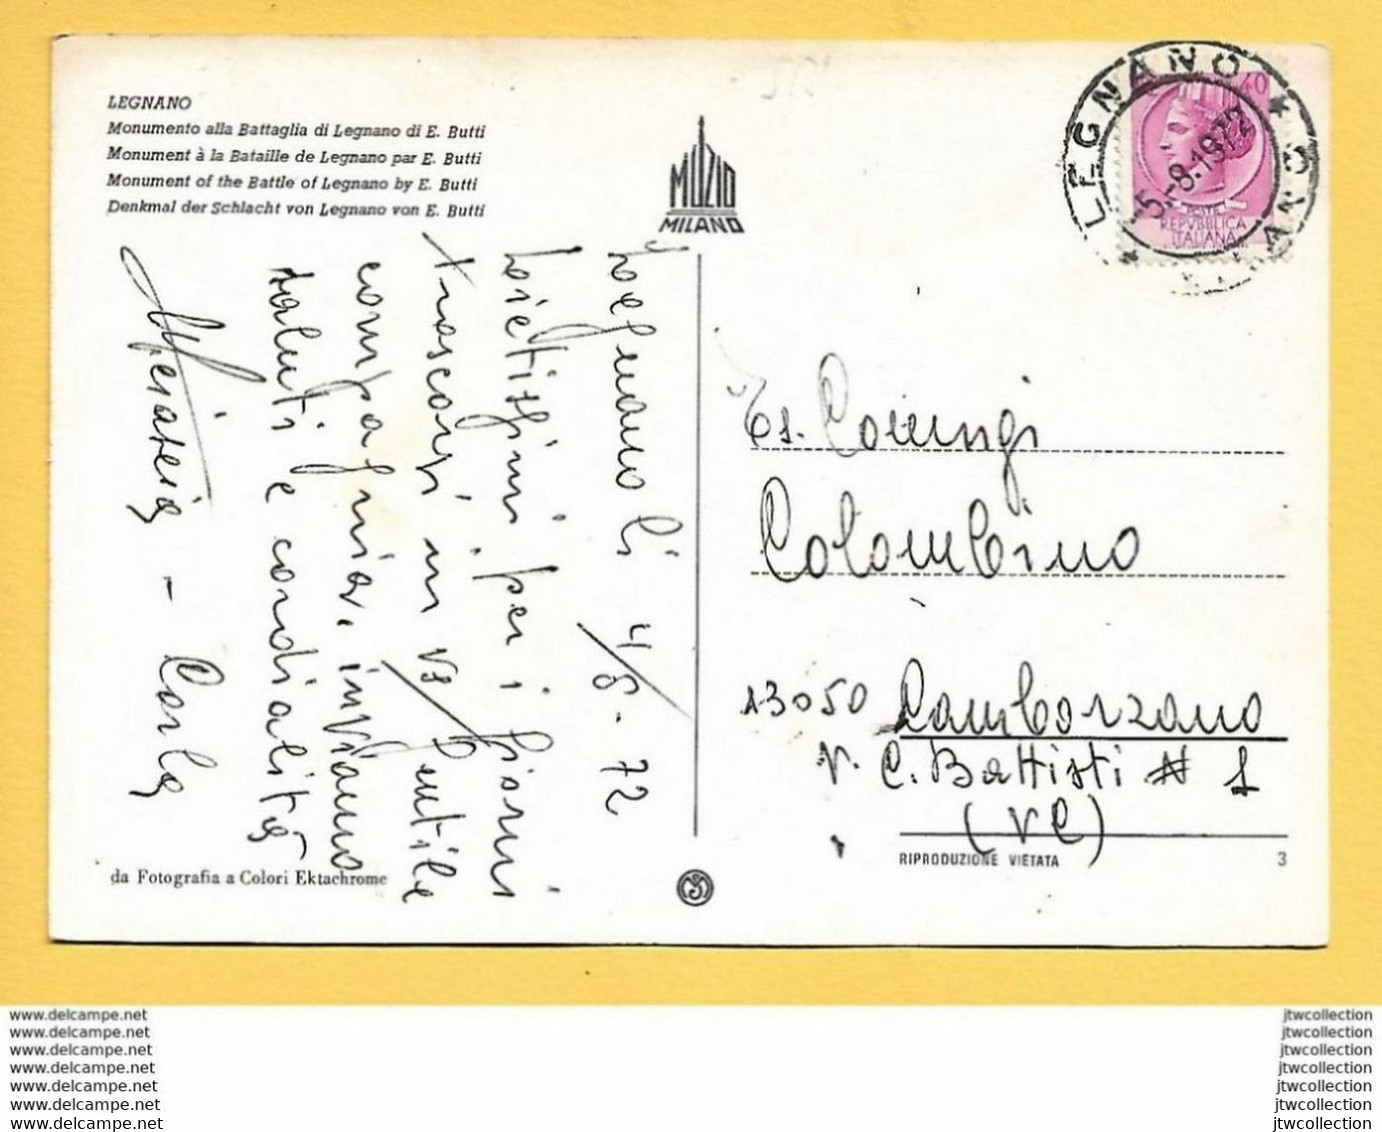 LEGNANO
Monumento alla Battaglia di Legnano di E. Butti
Monument à la Bataille de Legnano par E. Butti
Monument of the Battle of Legnano by E. Butti
Denkmal der Schlacht von Legnano von E. Butti
MUZIO
MILANO
LEGNANO * 
5.-8.1972
40
POSTE
REPVBBLICA
ITALIANA
Legnano li 4/8-72
Lietissimi, per i giorni
trascorsi in vs/gentile
compagnia, inviamo
saluti e cordialità
- Carla
Colombino
13050 Camborzano
V. C. Battisti N 1
(VC)
da Fotografia a Colori Ektachrome
RIPRODUZIONE VIETATA 3
www.delcampe.net
www.delcampe.net
www.delcampe.net
www.delcampe.net
www.delcampe.net
www.delcampe.net
www.delcampe.net
jtwcollection
jtwcollection
jtwcollection
jtwcollection
jtwcollection
jtwcollection
jtwcollection